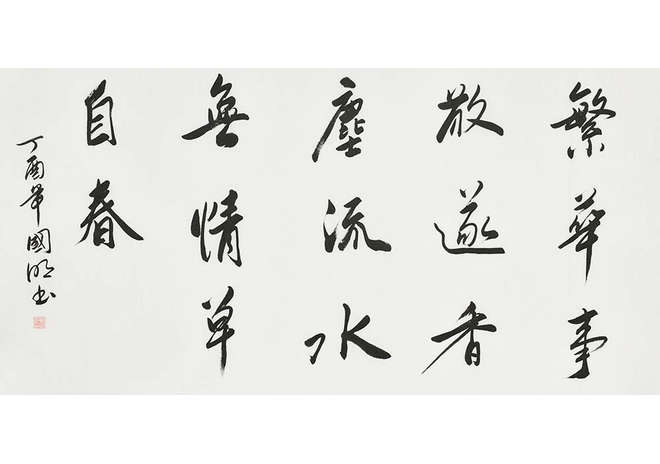 繁華事
散遂香
塵流水
無情草
自春
丁酉年國明书